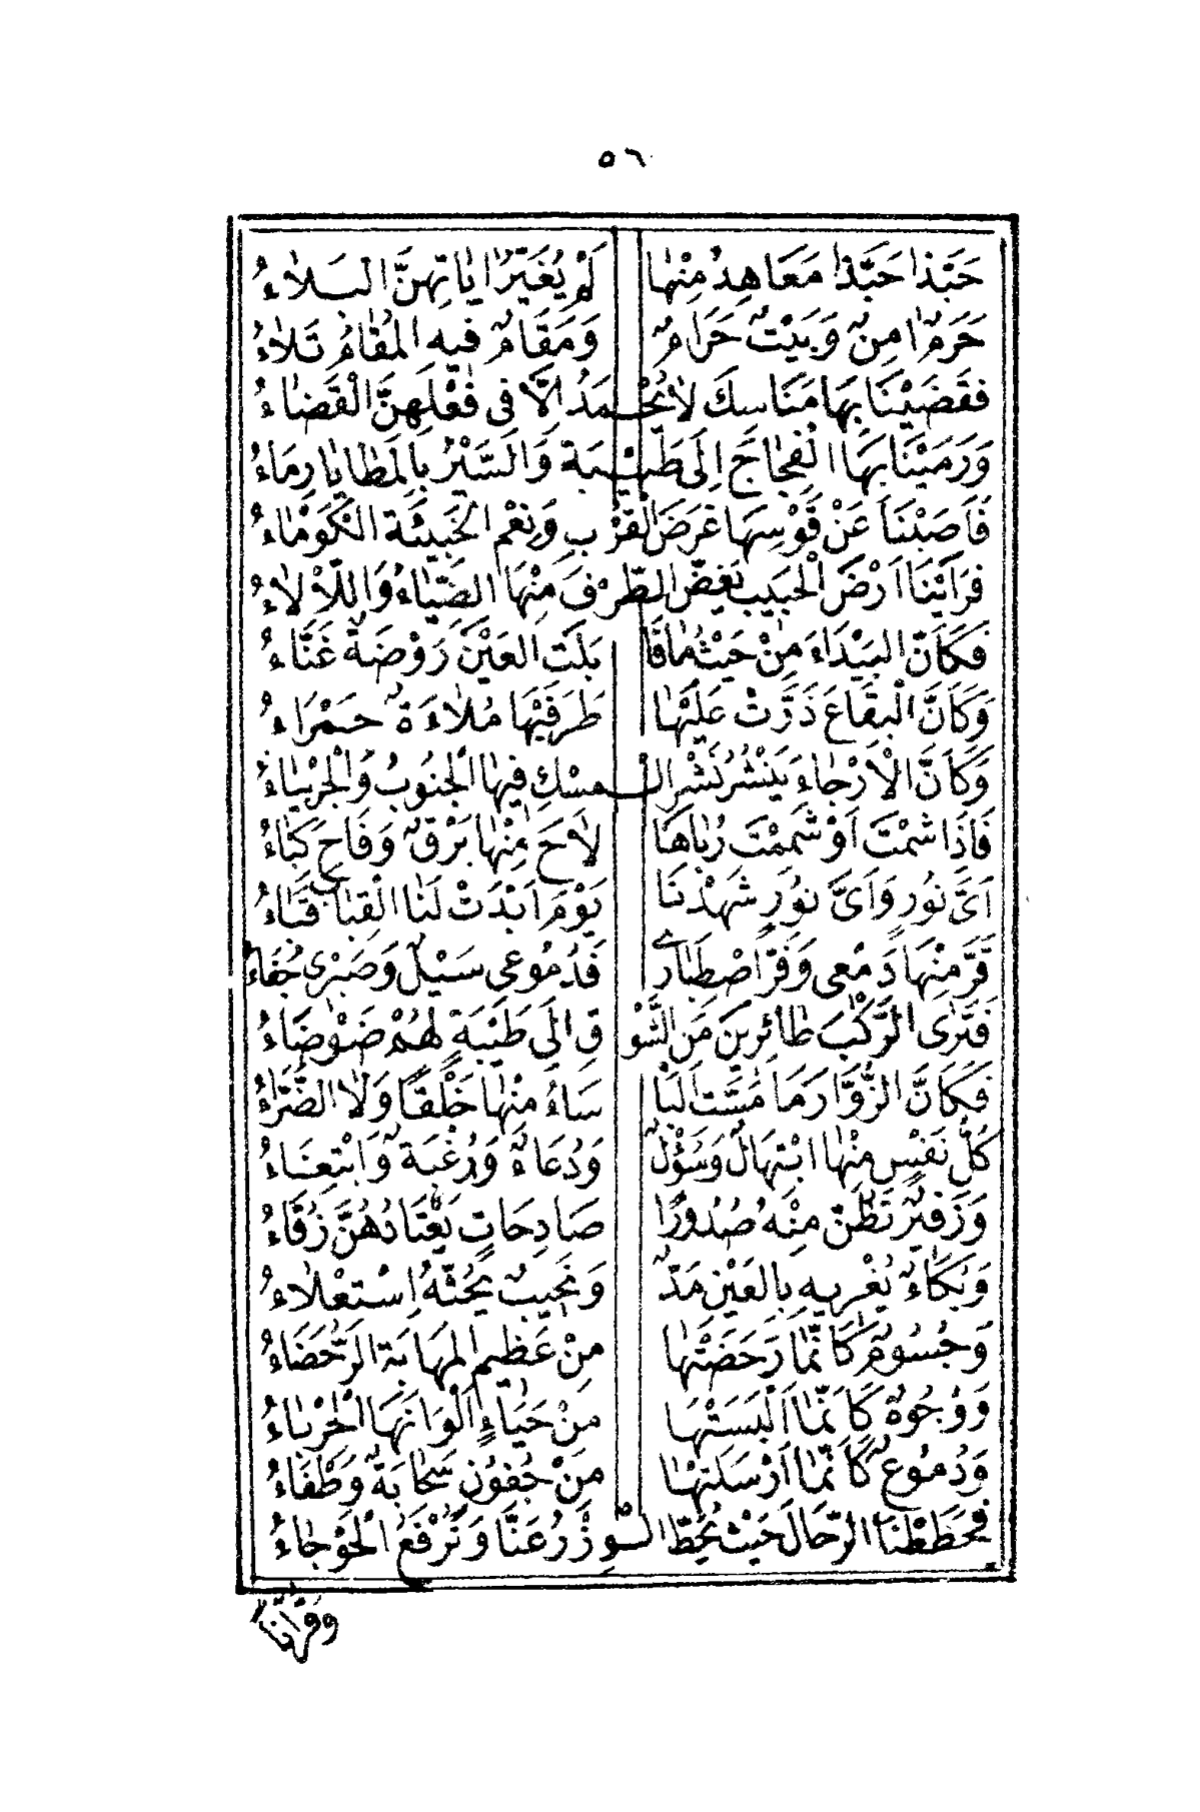 ٥٦
حَبَّذَا حَبَّذَا مَعَاهِدُ مِنْهَا لَمْ يُغَيِّرْ اٰيَاتِهِنَّ الْبَلَاءُ
حَرَمٌ اٰمِنٌ وَبَيْتٌ حَرَامٌ وَمَقَامٌ فِيهِ الْمُقَامُ تَلَاءُ
فَقَضَيْنَا بِهَا مَنَاسِكَ لَا يُحْمَدُ اِلَّا فِي فِعْلِهِنَّ الْقَضَاءُ
وَرَمَيْنَا بِهَا الْفِجَاجَ اِلَى طَيْبَةَ وَالسَّيْرُ بِالْمَطَايَا رِمَاءُ
فَاَصَبْنَا عَنْ قَوْسِهَا غَرَضَ الْقُرْبِ وَنِعْمَ الْخَبِيئَةُ الْكَوْمَاءُ
فَرَاَيْنَا اَرْضَ الْحَبِيبِ يَغُضُّ الطَّرْفَ مِنْهَا الضِّيَاءُ وَاللَّاْلَاءُ
فَكَاَنَّ الْبَيْدَاءَ مِنْ حَيْثُ مَا قَا بَلَتِ الْعَيْنَ رَوْضَةٌ غَنَّاءُ
وَكَاَنَّ الْبِقَاعَ ذَرَّتْ عَلَيْهَا طَرَفَيْهَا مُلَاءَةٌ حَمْرَاءُ
وَكَاَنَّ الْاَرْجَاءَ يَنْشُرُ نَشْرَ الْمِسْكِ فِيهَا الْجَنُوبُ وَالْجِرْبِيَاءُ
فَاِذَا شِمْتَ اَوْ شَمِمْتَ رُبَاهَا لَاحَ مِنْهَا بَرْقٌ وَفَاحَ كِبَاءُ
اَيَّ نُورٍ وَاَيَّ نَوْرٍ شَهِدْنَا يَوْمَ اَبْدَتْ لَنَا الْقِبَابَ قُبَاءُ
قَرَّ مِنْهَا دَمْعِي وَفَرَّ اصْطِبَارِي فَدُمُوعِي سَيْلٌ وَصَبْرِي جُفَاءُ
فَتَرَى الرَّكْبَ طَائِرِينَ مِنَ الشَّوْ قِ اِلَى طَيْبَةٍ لَهُمْ ضَوْضَاءُ
فَكَاَنَّ الزُّوَّارَ مَا مَسَّتِ الْبَا سَاءُ مِنْهَا خَلْقًا وَلَا الضَّرَّاءُ
كُلُّ نَفْسٍ مِنْهَا ابْتِهَالٌ وَسُؤْلٌ وَدُعَاءٌ وَرُغْبَةٌ وَابْتِغَاءُ
وَزَفِيرٌ تَظُنُّ مِنْهُ صُدُورًا صَادِحَاتٍ يَعْتَادُهُنَّ زُقَاءُ
وَبُكَاءٌ يُغْرِيهِ بِالْعَيْنِ مَدٌّ وَنَحِيبٌ يَحُثُّهُ اِسْتِعْلَاءُ
وَجُسُومٌ كَاَنَّمَا رَحَضَتْهَا مِنْ عَظِيمِ الْمَهَابَةِ الرُّحَضَاءُ
وَوُجُوهٌ كَاَنَّمَا اَلْبَسَتْهَا مِنْ حَيَاءٍ اَلْوَانَهَا الْحِرْبَاءُ
وَدُمُوعٌ كَاَنَّمَا اَرْسَلَتْهَا مِنْ جُفُونٍ سَحَابَةٌ وَطْفَاءُ
فَحَطَطْنَا الرِّحَالَ حَيْثُ يُحَطُّ الْوِزْرُ عَنَّا وَتُرْفَعُ الْحَوْجَاءُ
وَقَرَاْنَا